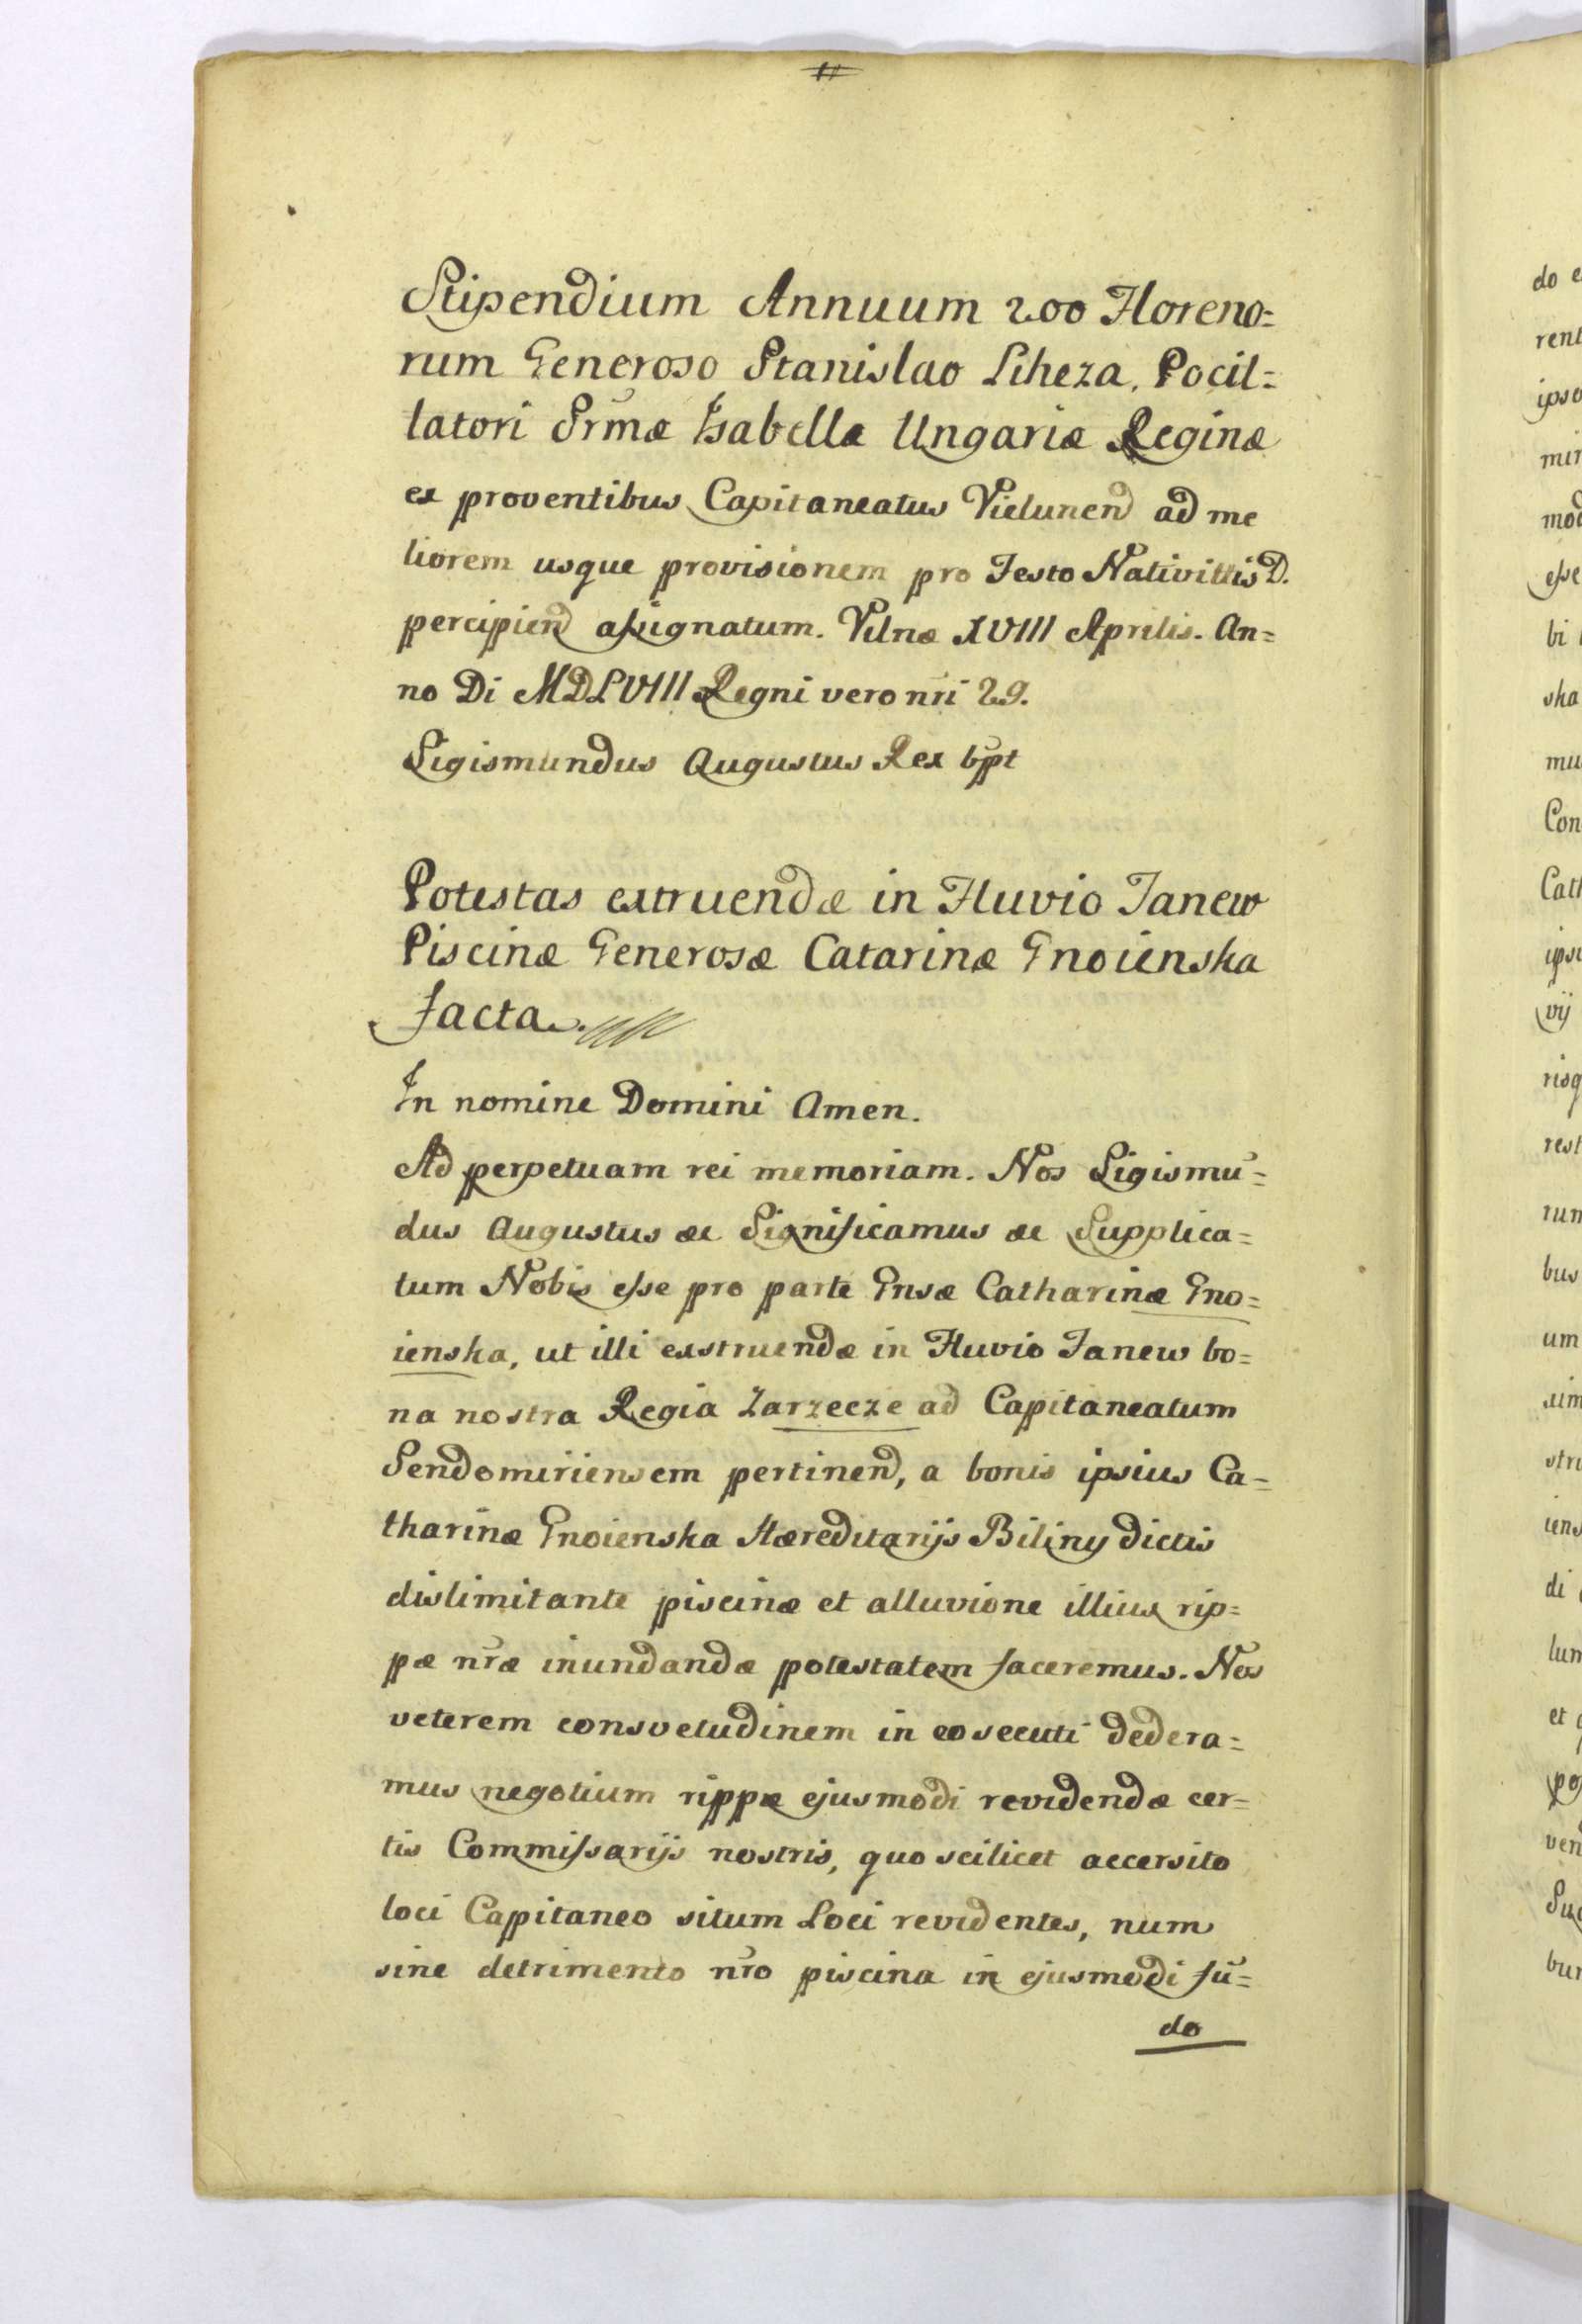 Stipendium Annuum 200 Floreno=
rum Generoso Stanislao Liheza, Pocil=
latori Srmæ Isabellæ Ungariæ Reginæ
ex proventibus Capitaneatus Vielunend ad me
liorem usque provisionem pro Festo Nativittis D.
percipiend assignatum. Vilnæ XVIII Aprilis. An=
no Di MDLVIII Regni vero nri 29.
Sigismundus Augustus Rex
Potestas extruendæ in Fluvio Tanew
Piscinæ Generosæ Catarinæ Gnoienska
facta.
In nomine Domini Amen.
Ad perpetuam rei memoriam. Nos Sigismū=
dus Augustus &c Significamus &c Supplica=
tum Nobis esse pro parte Gnsæ Catharinæ Gno=
ienska, ut illi exstruendæ in Fluvio Tanew bo=
na nostra Regia Zarzecze ad Capitaneatum
Sendomiriensem pertinend, a bonis ipsius Ca=
tharinæ Gnoienska Hæreditarijs Biliny dictis
dislimitante piscinæ et alluvione illius rip=
pæ nræ inundandæ potestatem faceremus. Nos
veterem consvetudinem in eo secuti dedera=
mus negotium rippæ ejusmodi revidendæ cer=
tis Commissarijs nostris, quo scilicet accersito
loci Capitaneo situm Loci revidentes, num
sine detrimento nro piscina in ejusmodi fū=
do
do e
rent
ipso
min
mod
esse
bi
ska
mu
Con
Cath
ipsi
vij
risq
rest
rum
bus
um
sim
stru
iens
di
lum
et
po
ven
Suc
bur